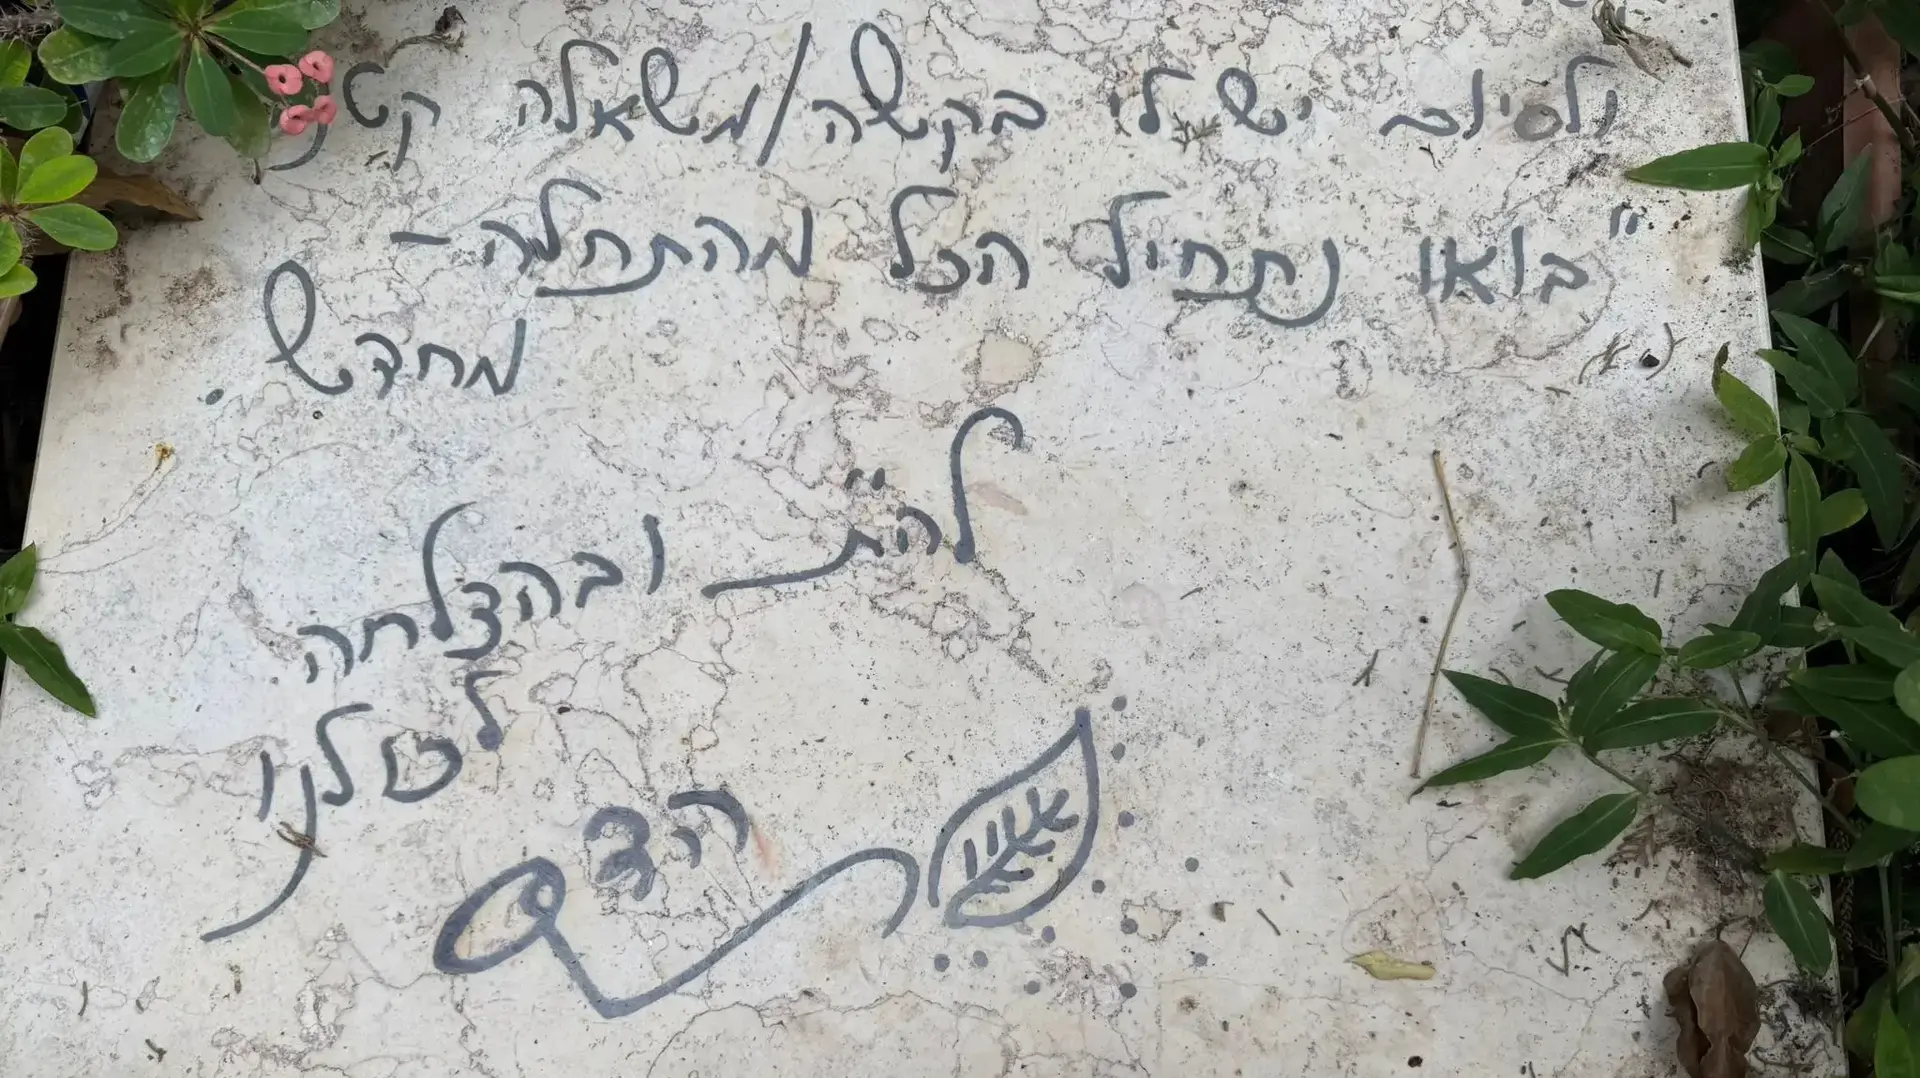 ולסיום יש לי בקשה/משאלה
"בואו נתחיל הכל מהתחלה-
מחדש.
לה"ת ובהצלחה
לכולנו